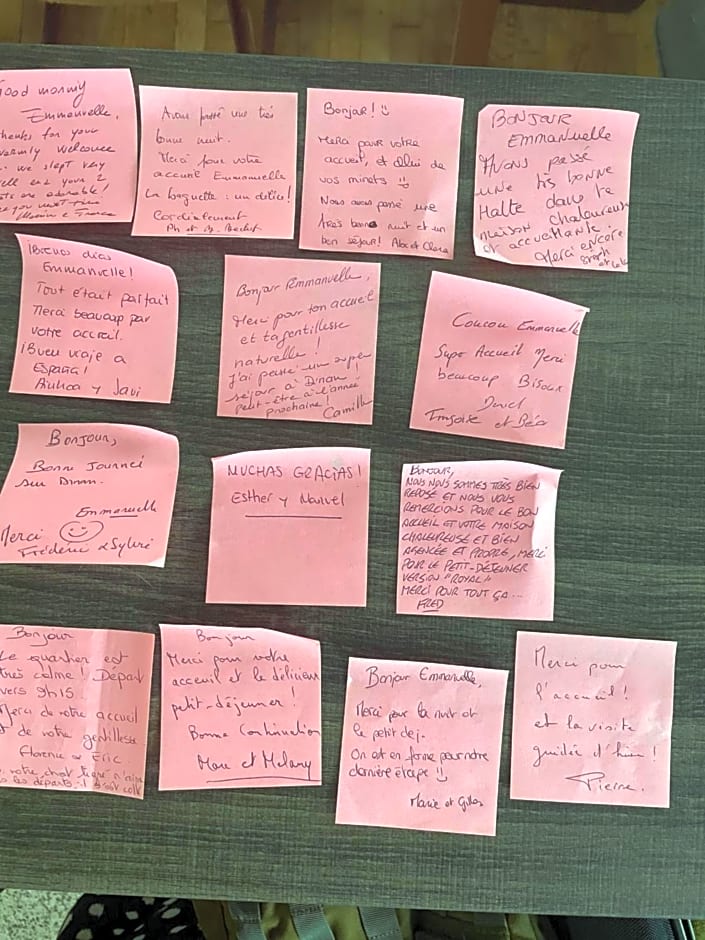 Good morning
Emmanuelle,
thanks for your
warmly welcome
we slept very
well and your 2
cats are adorable!
Avons passé une très
bonne nuit.
Merci pour votre
accueil Emmanuelle
La baguette : un délice!
Cordialement
Ph et
Bonjour!
Merci pour votre
accueil, et celui de
vos minets
Nous avons passé une
très bonne nuit et un
bon séjour! Alex et Clara
BONJOUR
EMMANUELLE
AVONS PASSÉ
UNE très bonne
Halte dans ta
maison chaleureuse
et accueillante
Merci encore
¡Buenos dias
Emmanuelle!
Tout était parfait
Merci beaucoup par
votre accueil.
¡Buen viaje a
España!
Ainhoa y Javi
Bonjour Emmanuelle,
Merci pour ton accueil
et ta gentillesse
naturelle!
J'ai passé un super
séjour à Dinan!
Peut-être à l'année
prochaine!
Camille
Coucou Emmanuelle
Super Accueil Merci
beaucoup Bisous
Daniel
Françoise et Béa
Bonjour,
Bonne Journée
sur Dinan.
Emmanuelle
Merci
Frédéric & Sylvie
MUCHAS GRACIAS!
Esther y Manuel
BONJOUR,
NOUS NOUS SOMMES TRÈS BIEN
REPOSÉ ET NOUS VOUS
REMERCIONS POUR LE BON
ACCUEIL ET VOTRE MAISON
CHALEUREUSE ET BIEN
AGENCÉE ET PROPRE, MERCI
POUR LE PETIT-DÉJEUNER
VERSION "ROYAL"
MERCI POUR TOUT ÇA...
FRED
Bonjour
Le quartier est
très calme! Départ
vers 9h15.
Merci de votre accueil
et de votre gentillesse
Florence & Eric
Bonjour
Merci pour votre
accueil et le délicieux
petit-déjeuner!
Bonne Continuation
Marc et Melany
Bonjour Emmanuelle,
Merci pour la nuit et
le petit dej.
On est en forme pour notre
dernière étape
Marie et Gilles
Merci pour
l'accueil!
et la visite
guidée d'hier!
Pierre.